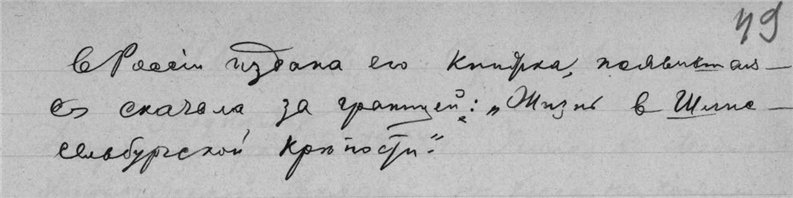 49
В Россіи издана его книжка, появившая-
ся сначала за границей: „Жизнь в Шлис-
сельбургской крѣпости".